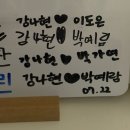 강나현 ♥ 이도은
강나현 ♥ 박예림
강나현 ♥ 박가연
강나현 ♥ 박예람
07.22
리